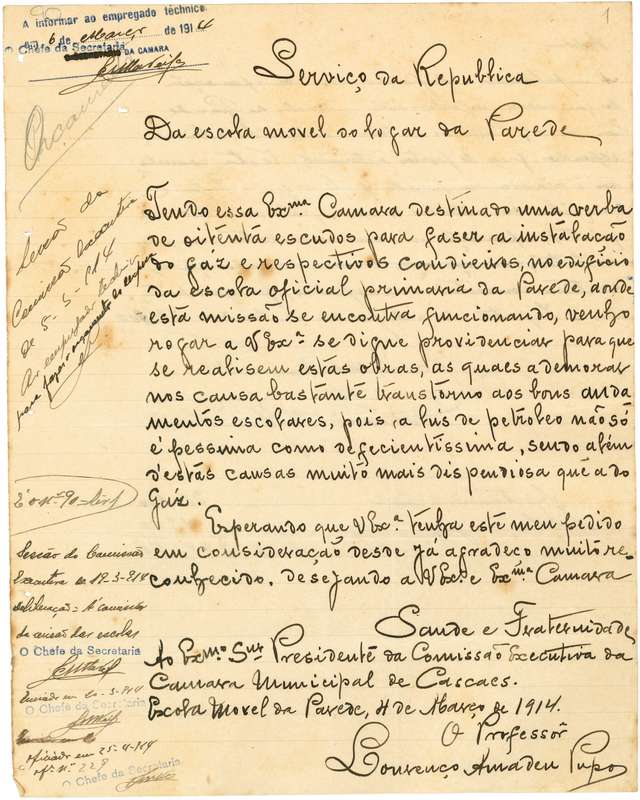 1
A informar ao empregado téchnico
6 de Março de 1914
O Chefe da Secretaria
DA CAMARA
Serviço da Republica
Da escola movel do logar da Parede
Orçamento
Sessão da
Comissão executiva
de 5-3-914
Ao empregado technico
para fazer orçamento
Tendo essa Exma Camara destinado uma verba
de oitenta escudos para faser a instalação
do gaz e respectivos candieiros, no edificio
da escola oficial primaria da Parede, aonde
está missão se encontra funcionando, venho
rogar a V Exa. se digne providenciar para que
se realisem estás obras, as quaes a demorar
nos causa bastante transtorno aos bons anda
mentos escolares, pois a luis de petroleo não só
é pessima como deficientissima, sendo além
d'estás causas muito mais dispendiosa que a do
Gaz.
Esperando que V Exa. tenha esté meu pedido
em consideração desde já agradeço muito re-
conhecido, desejando a V Exa. e Exma Camara
Saude e Fraternidade
É o nº 90
Sessão da Comissão
Executiva de 19-3-914
deliberação: Á comissão
O Chefe da Secretaria
Enviado em 20-3-914
O Chefe da Secretaria
oficiado em 25-4-914
of. nº 228
O Chefe da Secretaria
Ao Exmo. Snr. Presidente da Comissão Executiva da
Camara Municipal de Cascaes.
Escola Movel da Parede, 4 de Março de 1914.
O Professor
Lourenço Amadeu Pupo